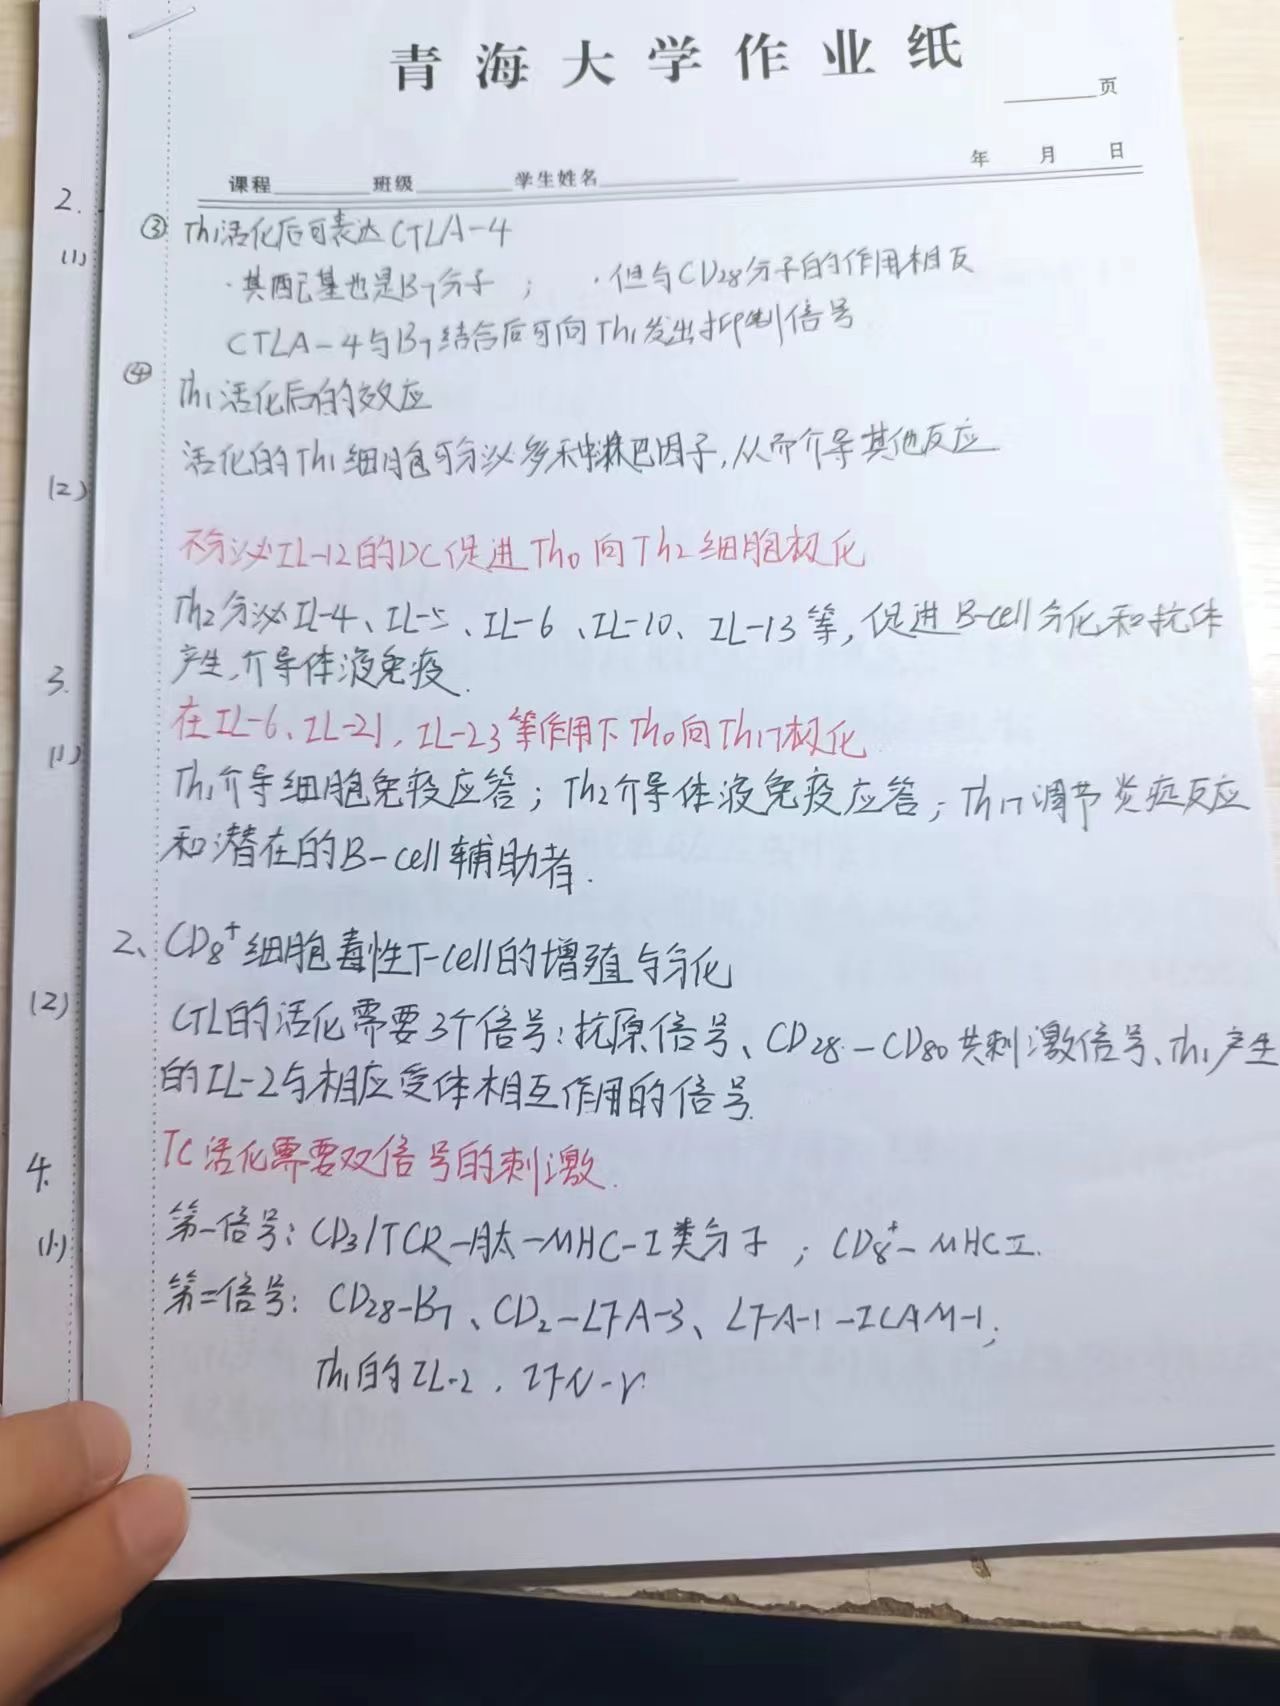 青海大学作业纸
页
年 月 日
课程 班级 学生姓名
2.
(1)
③ Th1活化后可表达CTLA-4
·其配己基也是B7分子； ·但与CD28分子的作用相反
CTLA-4与B7结合后可向Th1发出抑制信号
④ Th1活化后的效应
活化的Th1细胞可分泌多种淋巴因子,从而介导其他反应
(2)
不分泌IL-12的DC促进Th0向Th2细胞极化
Th2分泌IL-4、IL-5、IL-6、IL-10、IL-13等,促进B-cell分化和抗体
产生,介导体液免疫.
3.
在IL-6、IL-21,IL-23等作用下Th0向Th17极化
(1)
Th1介导细胞免疫应答；Th2介导体液免疫应答；Th17调节炎症反应
和潜在的B-cell辅助者.
2、CD8+细胞毒性T-cell的增殖与分化
(2)
CTL的活化需要3个信号:抗原信号、CD28-CD80共刺激信号、Th1产生
的IL-2与相应受体相互作用的信号.
4.
TC活化需要双信号的刺激.
(1)
第一信号：CD3/TCR-肽-MHC-I类分子；CD8+-MHCI.
第二信号：CD28-B7、CD2-LFA-3、LFA-1-ICAM-1；
Th1的IL-2、IFN-γ